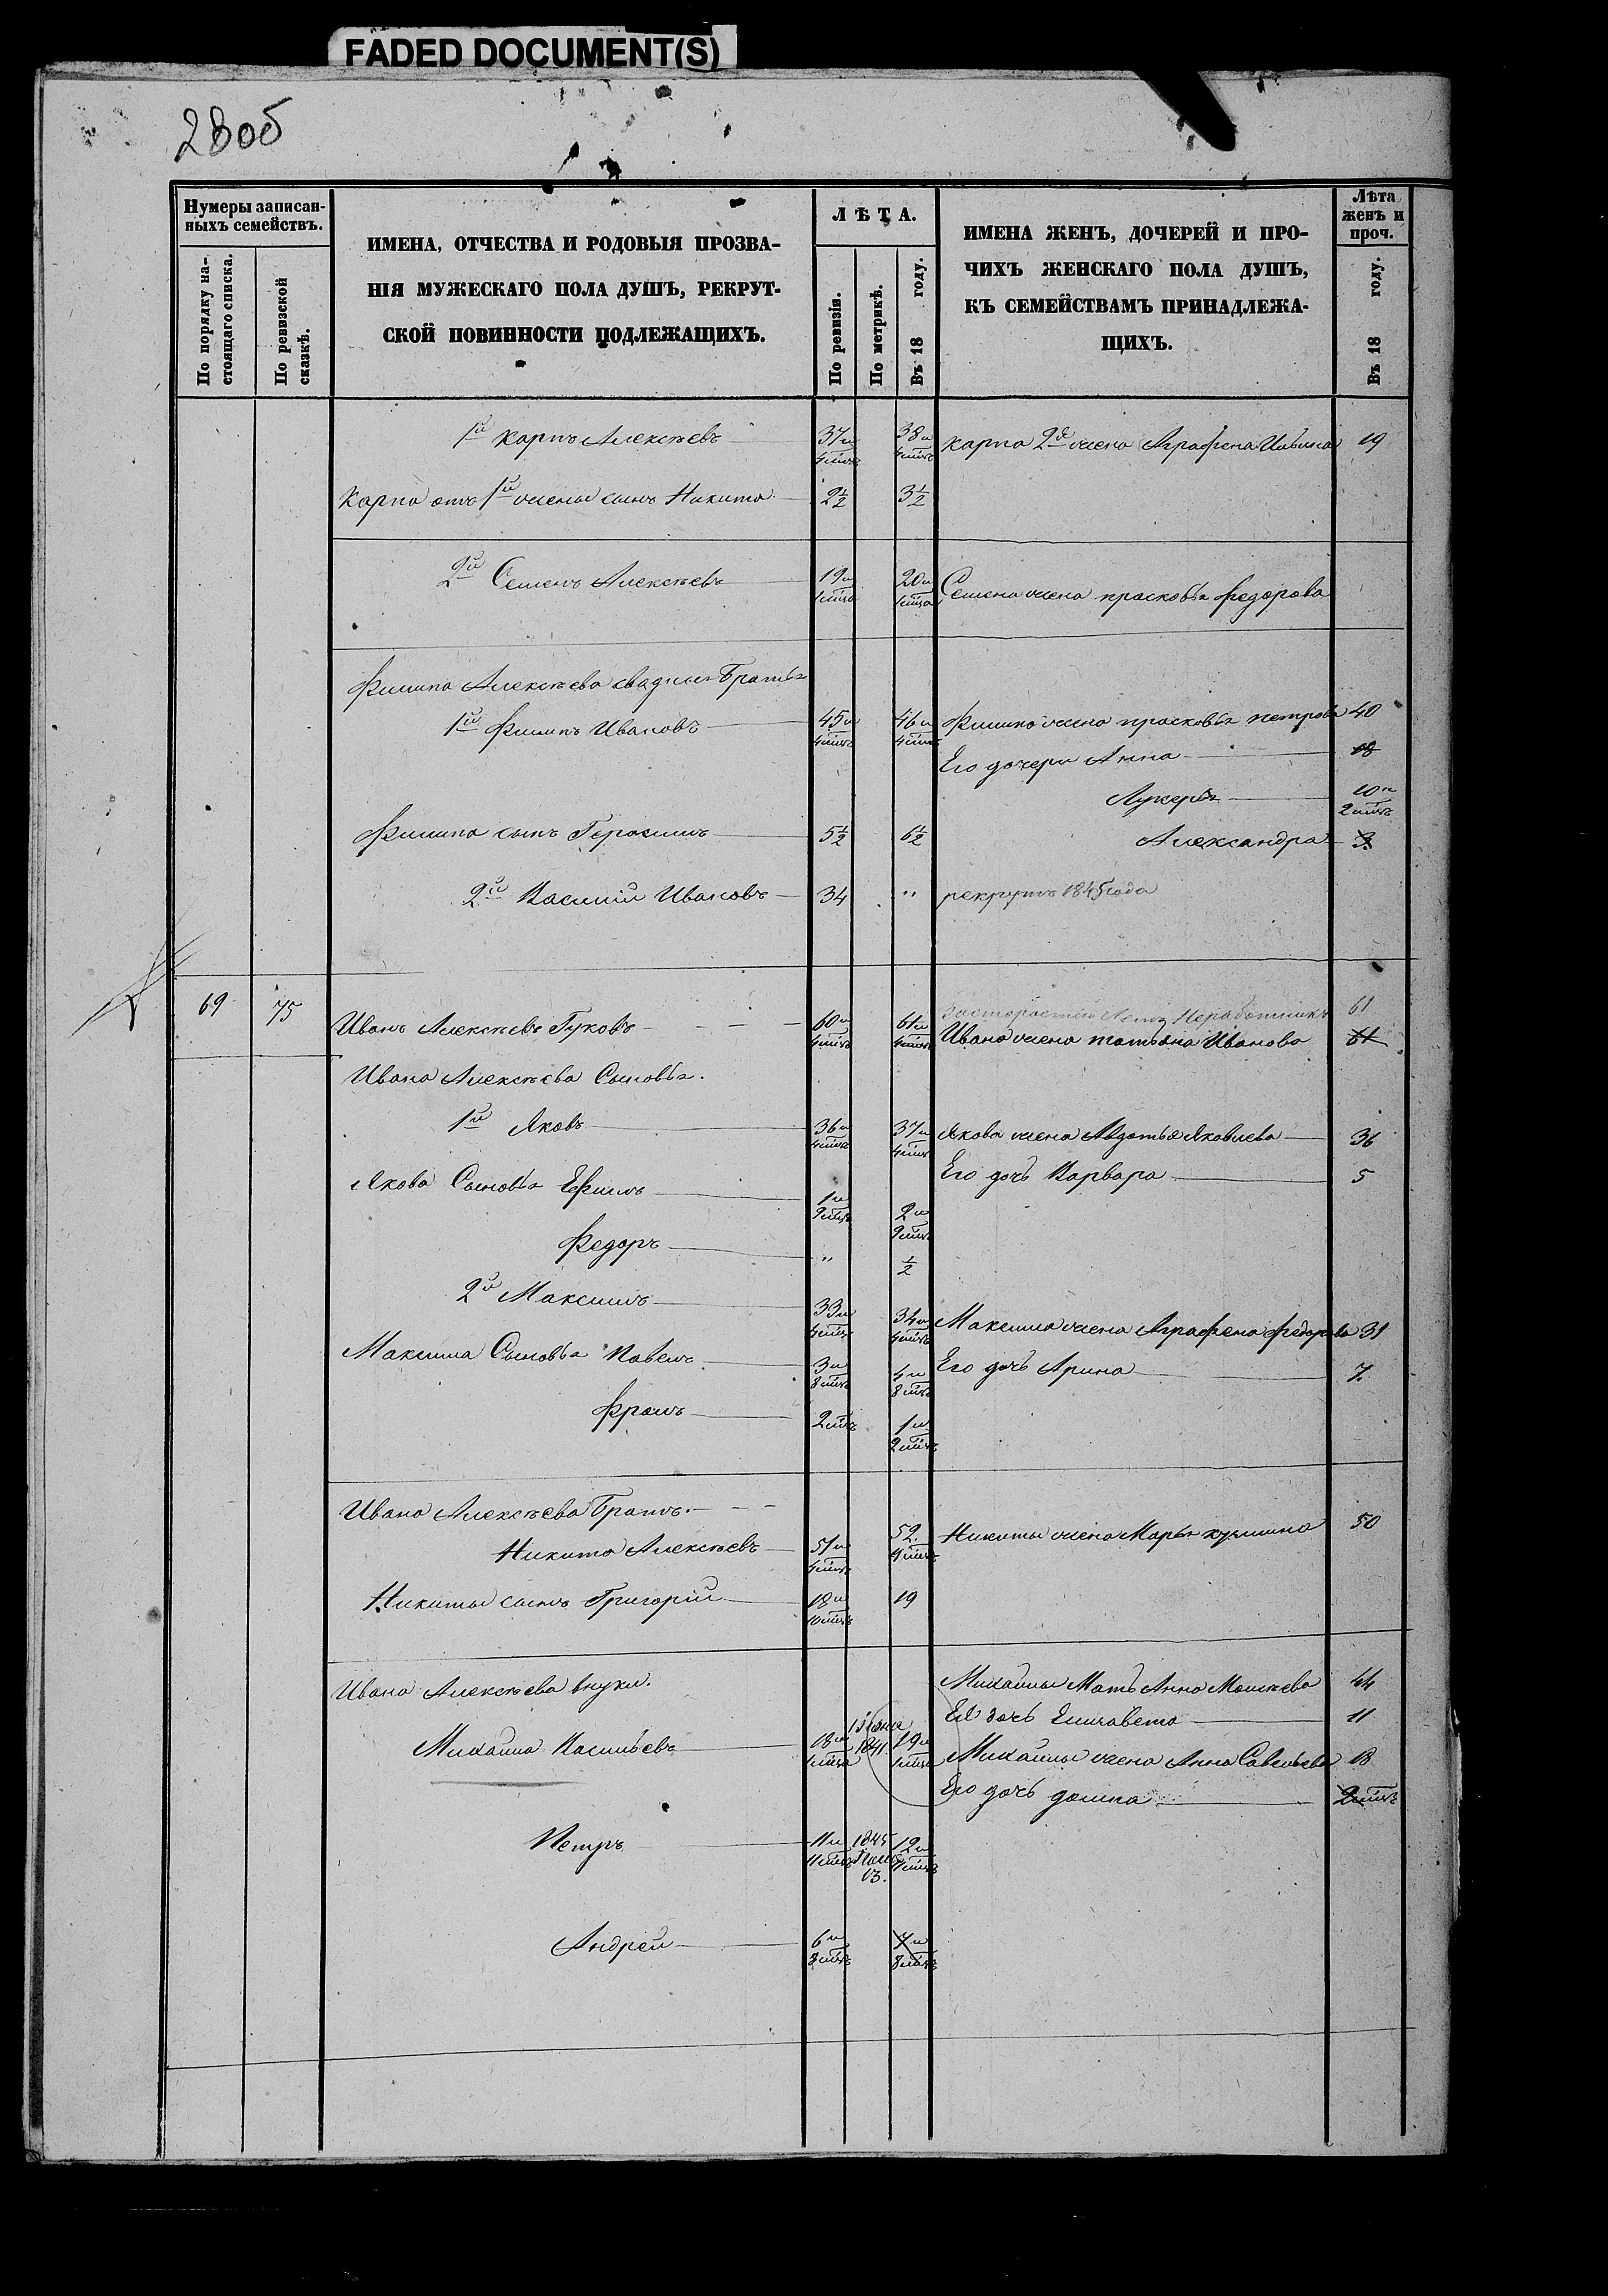 FADED DOCUMENT(S)
28об
Нумеры записан-
ныхъ семействъ.
По порядку на-
стоящаго списка.
По ревизской
сказкѣ.
ИМЕНА, ОТЧЕСТВА И РОДОВЫЯ ПРОЗВА-
НІЯ МУЖЕСКАГО ПОЛА ДУШЪ, РЕКРУТ-
СКОЙ ПОВИННОСТИ ПОДЛЕЖАЩИХЪ.
ЛѢТА.
По ревизіи.
По метрикѣ.
Въ 18 году.
ИМЕНА ЖЕНЪ, ДОЧЕРЕЙ И ПРО-
ЧИХЪ ЖЕНСКАГО ПОЛА ДУШЪ,
КЪ СЕМЕЙСТВАМЪ ПРИНАДЛЕЖА-
ЩИХЪ.
Лѣта
женъ и
проч.
Въ 18 году.
1й Карпъ Алексѣевъ 37 и 4 мцъ 38 и 4 мцъ Карпа 2я жена Аграфена 19
Карпа отъ 1й жены сынъ Никита 2½ 3½
2й Семенъ Алексѣевъ 19 и 1 мца 20 и 1 мца Семена жена прасковья федорова
Филипа Алексѣева сводныя Братья
1й Филипъ Ивановъ 45 и 4 мцъ 46 и 4 мцъ Филипа жена прасковья петрова 40
Его дочери Анна 18
Лукерья 10 и 2 мцъ
Филипа сынъ Герасимъ 5½ 6½ Александра 3
2й Василій Ивановъ 34 " рекрутъ 1845 года
69 75 Иванъ Алексѣевъ Гуковъ 60 и 4 мцъ 61 и 4 мцъ 61
Ивана жена татьяна Иванова 61
Ивана Алексѣева Сыновья.
1й Яковъ 36 и 4 мцъ 37 и 4 мцъ Якова жена Авдотья Яковлева 36
Якова Сыновья Ефимъ 1 и 9 мцъ 2 и 9 мцъ Его дочь Варвара 5
Федоръ " ½
2й Максимъ 33 и 4 мцъ 34 и 4 мцъ Максима жена Аграфена федорова 31
Максима Сыновья Павелъ 3 и 8 мцъ 4 и 8 мцъ Его дочь Арина 7.
Фролъ 2 мцъ 1 и 2 мцъ
Ивана Алексѣева Братъ.
Никита Алексѣевъ 51 и 4 мцъ 52. 4 мцъ Никиты жена Марья кузмина 50
Никиты сынъ Григорій 18 и 10 мцъ 19
Ивана Алексѣева внуки.
Михайлы Мать Анна Моисѣева 44
Ея дочь Елизавета 11
Михайла Васильевъ 18 и 1 мца 1841. 19 и 1 мца Михайлы жена Анна Савельева 18
Его дочь домна 2 мцъ
Петръ 11 и 11 мцъ 1845 13. 12 и 11 мцъ
Андрей 6 и 8 мцъ 7 и 8 мцъ